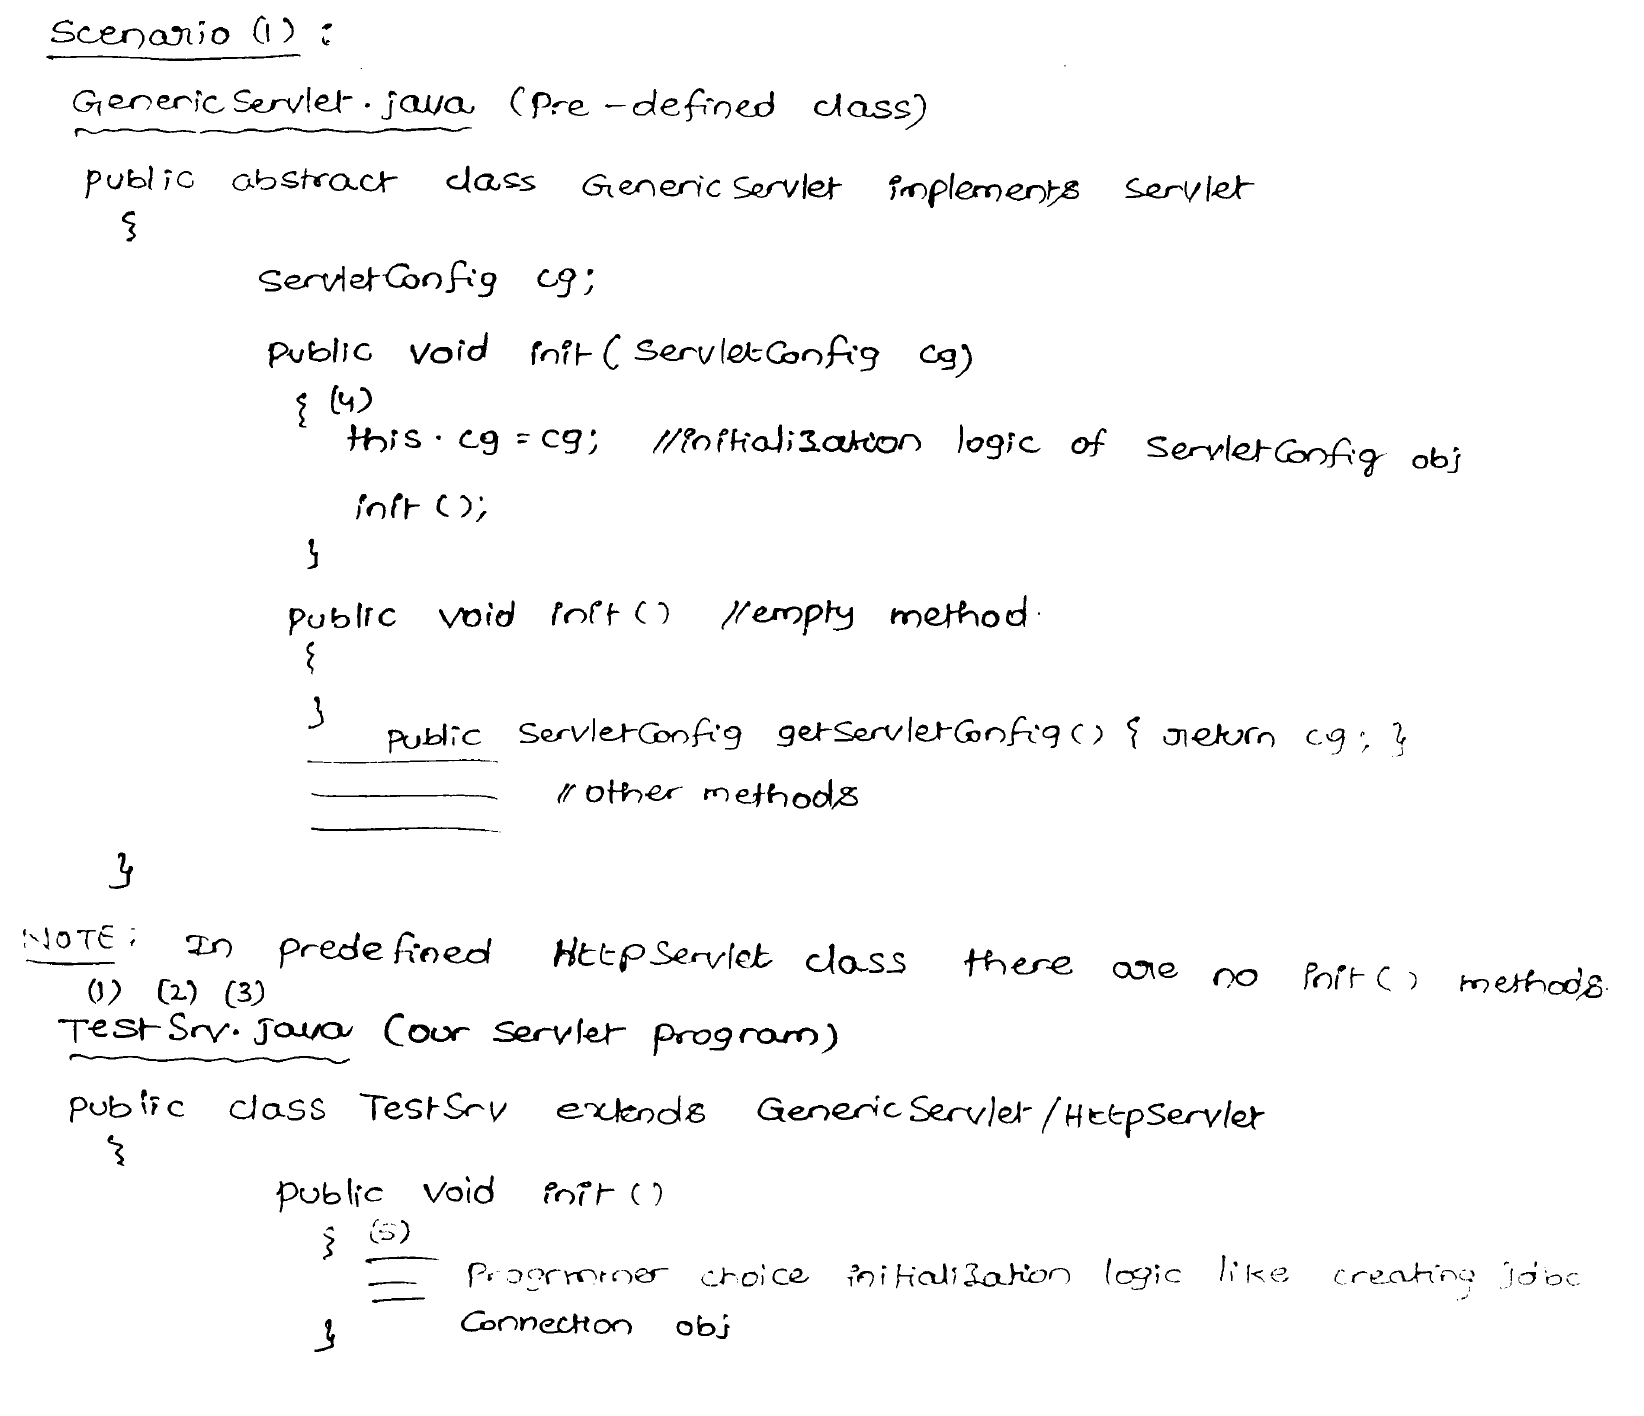 Scenario (1) :
GenericServlet.java (pre-defined class)
public abstract class GenericServlet implements Servlet
{
ServletConfig cg;
public void init(ServletConfig cg)
{ (4)
this.cg = cg; //initialization logic of ServletConfig obj
init();
}
public void init() //empty method.
{
}
public ServletConfig getServletConfig() { return cg; }
// other methods
}
NOTE: In predefined HttpServlet class there are no init() methods.
(1) (2) (3)
TestSrv.java (our servlet program)
public class TestSrv extends GenericServlet/HttpServlet
{
public void init()
{ (5)
choice initialization logic like creating jdbc
Connection obj
}